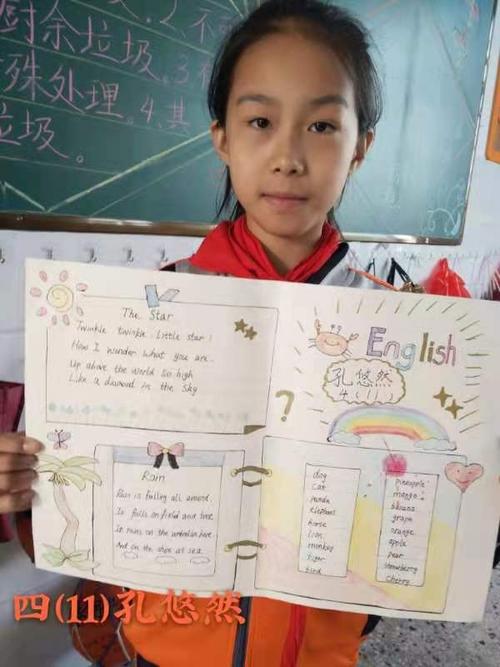 厨余垃圾. 2.不
殊处理. 3.
垃圾. 4.其
圾。
The Star
Twinkle twinkle. Little star!
How I wonder what you are.
Up above the world So high
Like a diamond in the Sky
Rain
Rain is falling all around.
It falls on field and tree
It rains on the umbrellas here.
And on the ships at sea.
English
孔悠然
4(11)
?
dog
Cat
Panda
elephant
horse
lion
monkey
tiger
bird
Pineapple
mango
banana
grape
orange
apple
pear
strawberry
Cherry
四(11)孔悠然